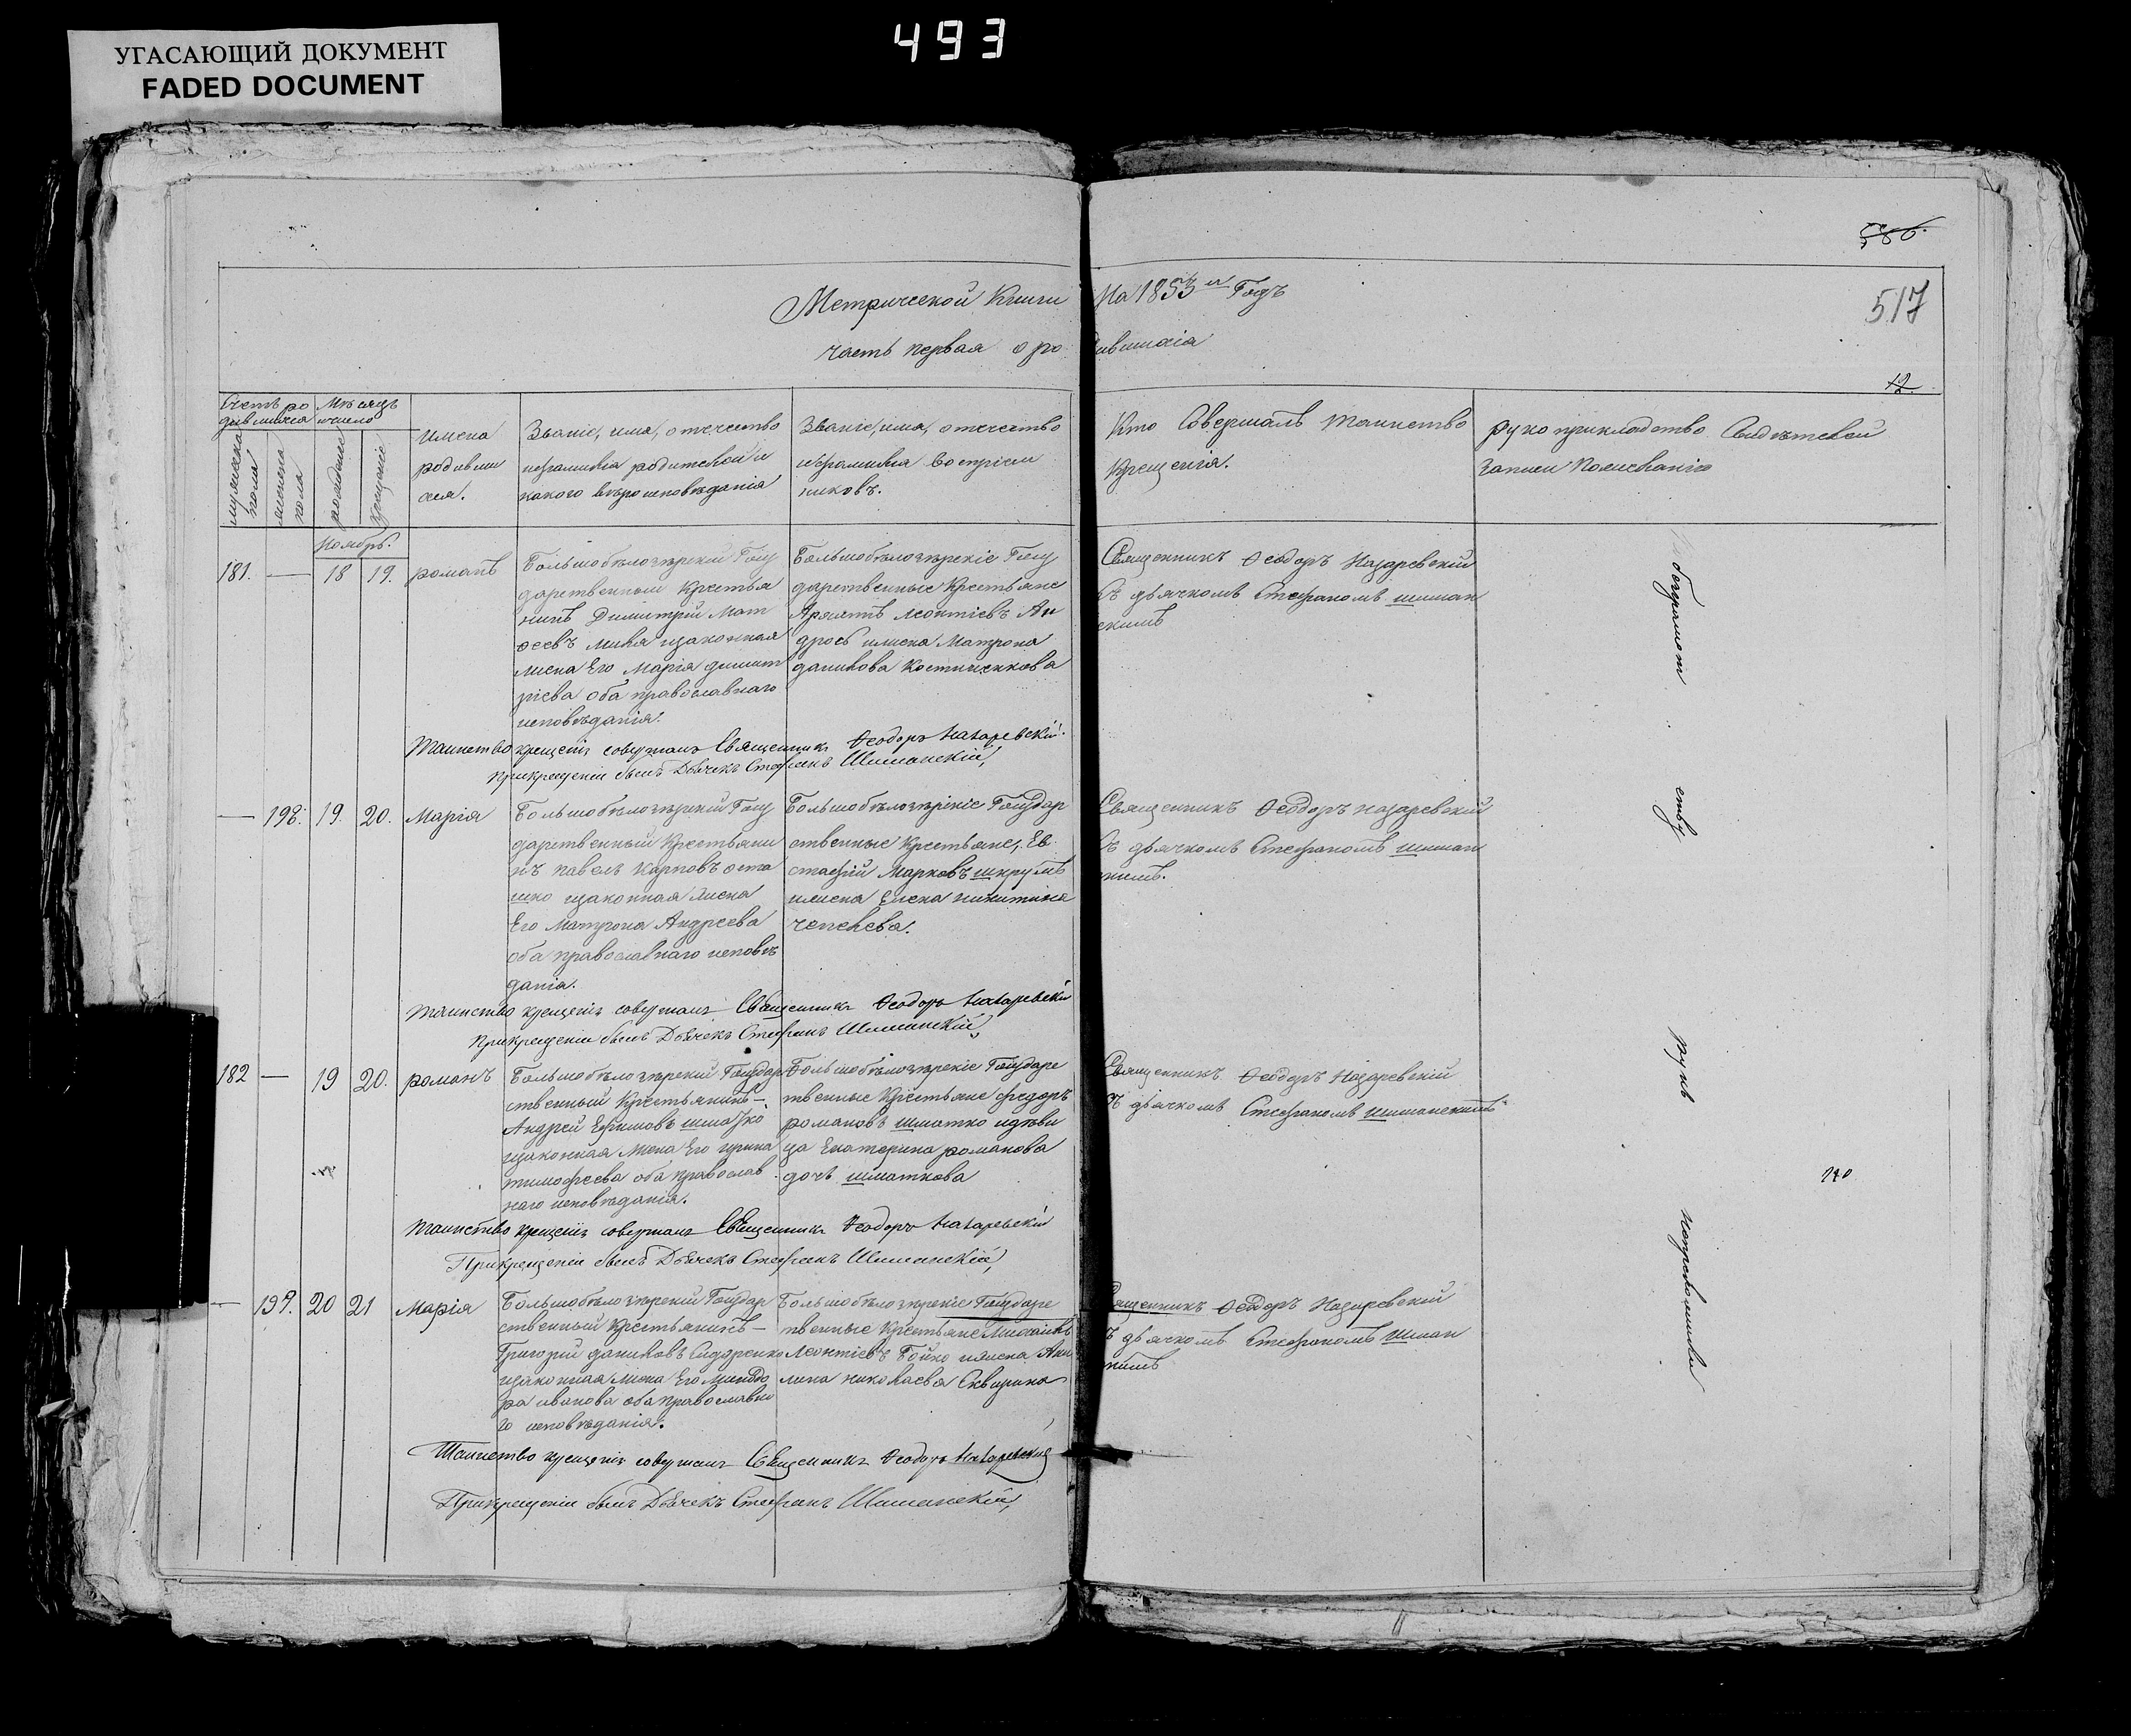 УГАСАЮЩИЙ ДОКУМЕНТ
FADED DOCUMENT
493
586.
517
12
Метрической Книги На 1853й Годъ
часть первая о ро дившихся
Счетъ ро
дившихся
мужеска
пола
женска
пола
Мѣсяцъ
и число
рожденіе
крещеніе
Имена
родивши
хся.
Званіе, имя, отчество
и фамилія родителей и
какого вѣроисповѣданія
Званіе, имя, отчество
и фамилія воспріем
никовъ.
Кто Совершалъ таинство
Крещенія.
рукоприкладство Свидѣтелей
записи по желанію
Ноябрь.
181. — 18 19. романъ
Большобѣлозѣрскій Госу
дарственный Крестья
нинъ Димитрій Мат
ѳеевъ Миня изаконная
жена Его Марія димит
ріева оба православнаго
исповѣданія.
Большобѣлозѣрскіе Госу
дарственные Крестьяне
Леонтіевъ Ан
дросъ ижена Матрона
данилова Костюченкова
Священникъ Ѳеодоръ Назаревскій
съ дьячкомъ Стефаномъ шиман
скимъ
Таинство крещенія совершалъ Священникъ Ѳеодоръ Назаревскій.
При крещеніи былъ Дьячекъ Стефанъ Шиманскій,
— 198. 19. 20. Марія
Большобѣлозѣрскій Госу
дарственный Крестьяни
нъ павелъ Карповъ оста
шко изаконная жена
Его Матрона Андреева
оба православнаго исповѣ
данія.
Большобѣлозѣрскіе Государ
ственные Крестьяне, Ев
стафій Марковъ шкрумъ
ижена Елена никитина
чепелева.
Священникъ Ѳеодоръ назаревскій
съ дьячкомъ Стефаномъ шиман
скимъ.
Таинство крещенія совершалъ Священникъ Ѳеодоръ Назаревскій
При крещеніи былъ Дьячекъ Стефанъ Шиманскій,
182 — 19 20. романъ
Большобѣлозѣрскій Государ
ственный Крестьянинъ —
Андрей Ефимовъ шматко
изаконная жена Его ирина
тимофеева оба православ
наго исповѣданія.
Большобѣлозѣрскіе Государс
твенные Крестьяне федоръ
романовъ шматко идѣви
ца Екатерина романова
дочь шматкова
Священникъ Ѳеодоръ Назаревскій
съ дьячкомъ Стефаномъ шиманскимъ
Таинство крещенія совершалъ Священникъ Ѳеодоръ Назаревскій
При крещеніи былъ Дьячекъ Стефанъ Шиманскій,
— 199. 20 21 Марія
Большобѣлозѣрскій Государ
ственный Крестьянинъ —
Григорій даниловъ Сидоренко
изаконная жена Его
ра иванова оба православна
го исповѣданія.
Большобѣлозѣрскіе Государс
твенные Крестьяне Михаилъ
Леонтіевъ Бойко ижена Аки
лина николаева Сквирина
Священникъ Ѳеодоръ Назаревскій
съ дьячкомъ Стефаномъ шиман
скимъ
Таинство крещенія совершалъ Священникъ Ѳеодоръ Назаревскій
При крещеніи былъ Дьячекъ Стефанъ Шиманскій,
по безграмотно
ству
рукъ
неприложили